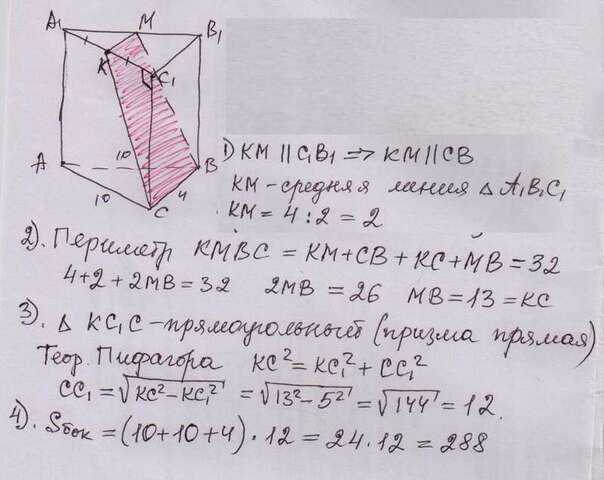 A₁ M B₁
K C₁
A 10 B
10 C 4
1) KM || C₁B₁ ⇒ KM || CB
KM - средняя линия Δ A₁B₁C₁
KM = 4 : 2 = 2
2). Периметр KMBC = KM + CB + KC + MB = 32
4 + 2 + 2MB = 32 2MB = 26 MB = 13 = KC
3). Δ KC₁C - прямоугольный (призма прямая)
Теор. Пифагора KC² = KC₁² + CC₁²
CC₁ = √KC² - KC₁² = √13² - 5² = √144 = 12.
4). Sбок = (10 + 10 + 4) · 12 = 24 · 12 = 288